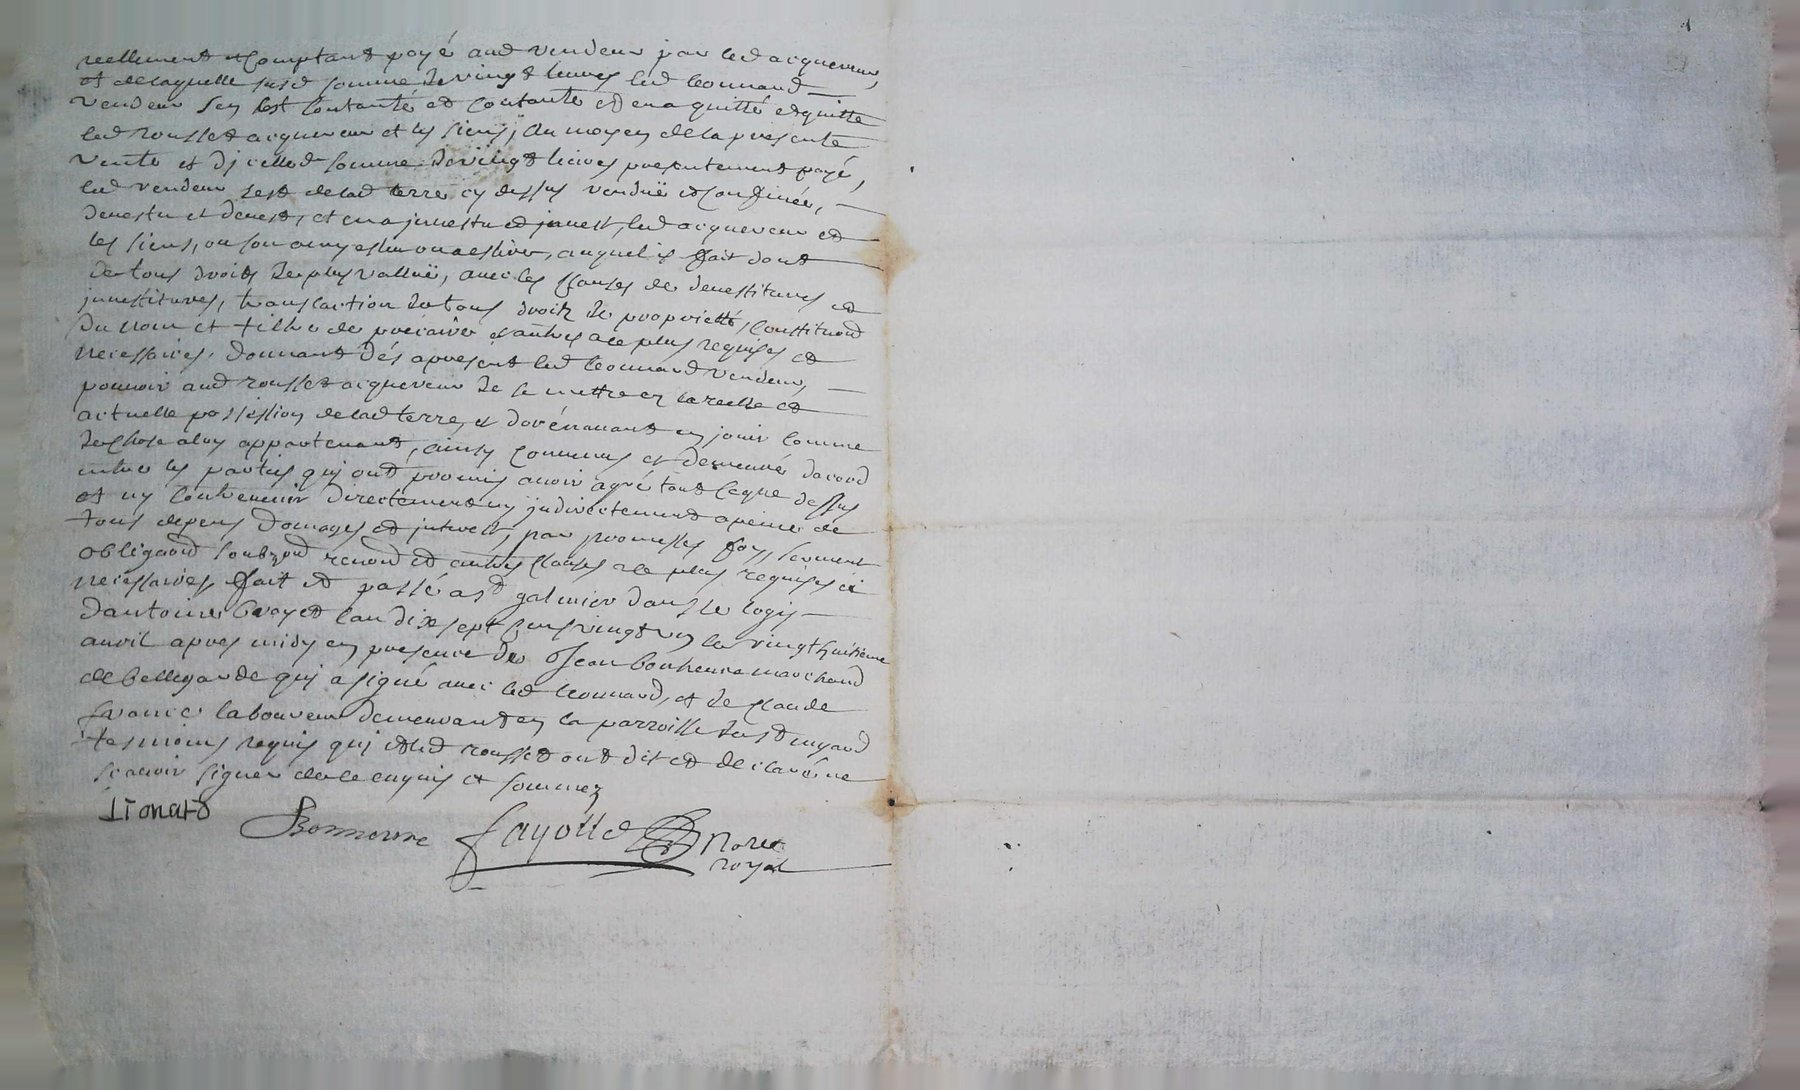 reellement et comptant payé aud vendeur par led acquereur,
et de laquelle susd somme de vingt livres led Leonnard
vendeur sen est contanté et contante et en a quitté et quitte
led rousset acquereur et les siens, au moyen de la presente
vente et djcelled somme de vingt livres presentement payé,
led vendeur sest de lad terre cy dessus venduë et confinée,
devestu et devest, et en a jnvestu et jnvest, led acquereur et
les siens, ou son amy eslu ou a eslire, auquel il fait dont
de tous droits de plus valluë, avec les clauses de devestitures et
jnvestitures, translaction de tous droitz de proprietté, constituon
du nom et tiltre de precaire et autres a ce plus requises et
necessaires, donnant dés apresent led Leonnard vendeur,
pouvoir aud rousset acquereur de se mettre en la reelle et
actuelle possession de lad terre, et dorénavant en jouir comme
de chose a luy appartenant, ainsy convenus et demeuré dacord
entre les parties qui ont promis avoir agré tout ce que dessus
et ny contrevenir directement ny jndirectement a peine de
tous depens domages et jnterest, par promesses foy, serment
obligaon soubzon renon et autres clauses a ce plus requises et
necessaires fait et passé a st galmier dans le logis
dantoine bayet lan dix sept cens vingt un le vingt huitieme
avril apres midy en presence de sr Jean bonheure marchand
de bellegarde qui a signé avec led Leonnard, et de claude
laboureur demeurant en la parroisse de st
tesmoins requis qui et led rousset ont dit et declaré ne
scavoir signer de ce enquis et sommez
Lionard
Bonneure fayolle Nore
royal